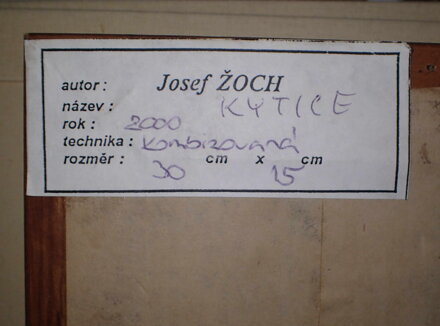 autor : Josef ŽOCH
název : KYTICE
rok : 2000
technika : kombizovaná
rozměr : 30 cm x 15 cm